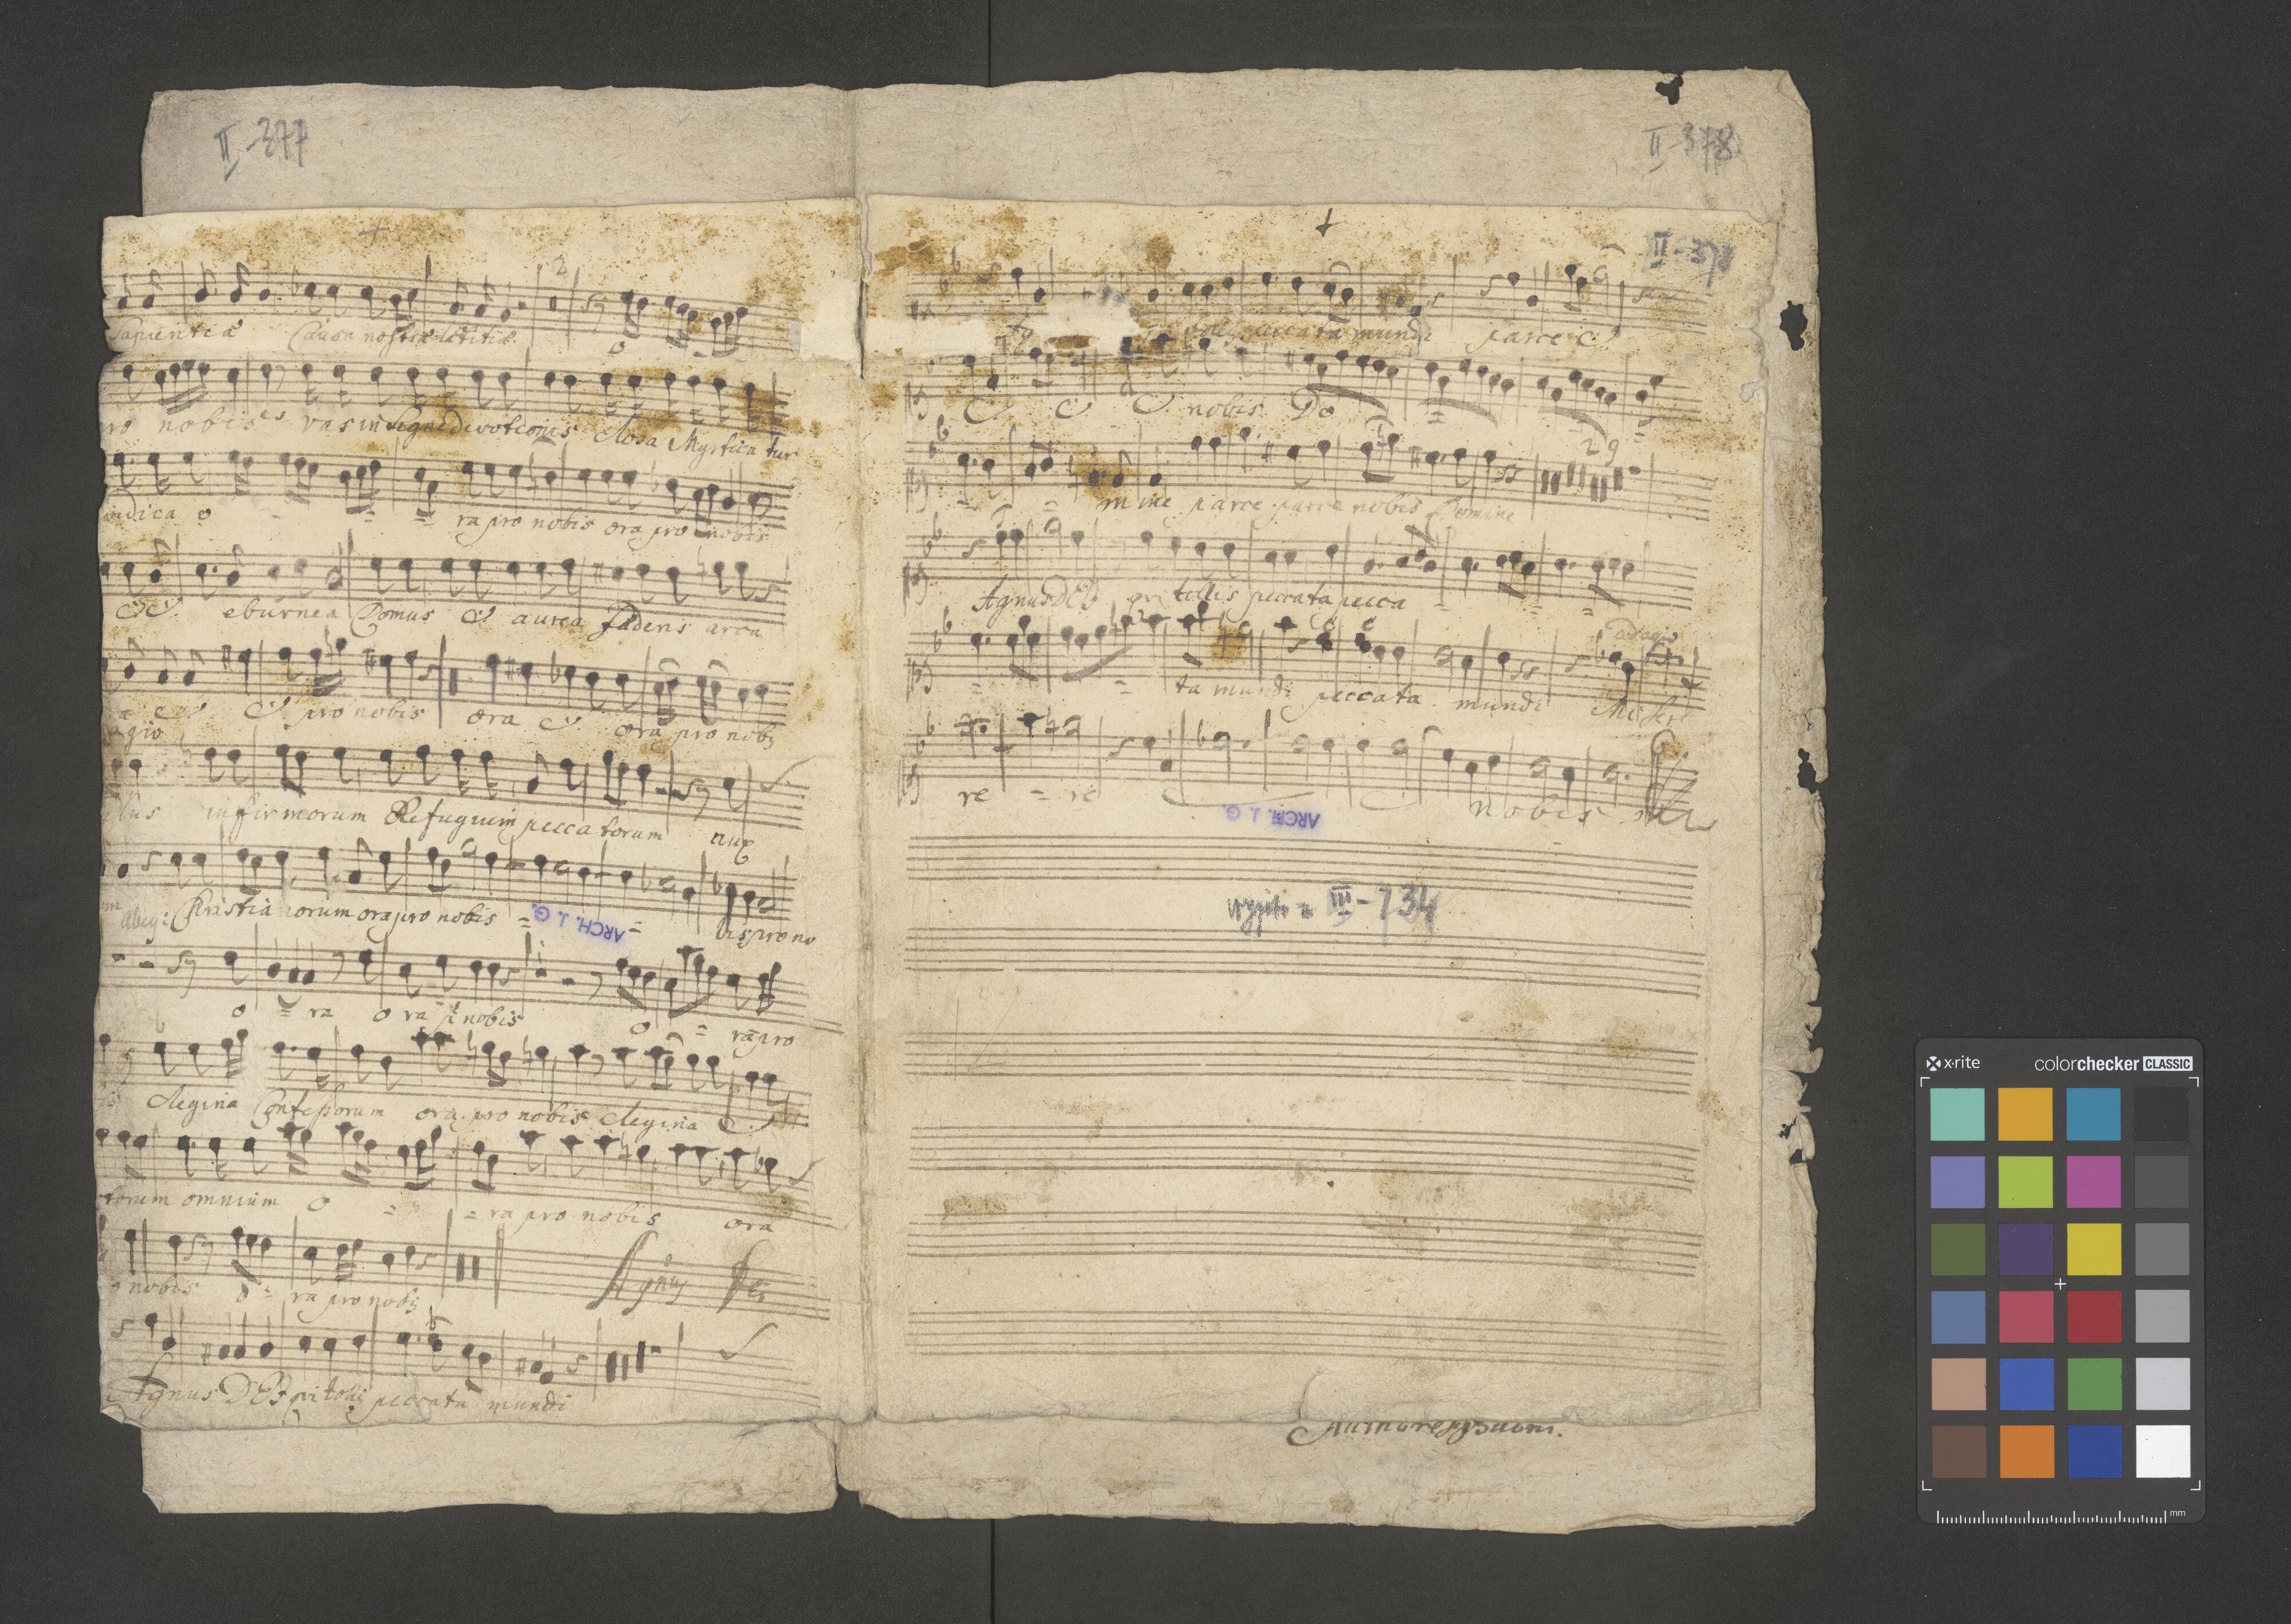 II-377
2
Sapientiæ Causa nostræ lætitiæ o
ro nobis vas insigne devotionis Rosa Mystica tur
vidica o = = ra pro nobis ora pro nobis
eburnea Domus aurea Fæderis arca
pro nobis ora ora pro nobis
agio
infirmorum Refugium peccatorum aux
Christianorum ora pro nobis = = bis pro no
ARCH. J. G.
o = ra o ra p nobis o = ra pro
Regina Confessorum ora pro nobis Regina
torum omnium o = = ra pro nobis ora
o nobis o = ra pro nobis Agnus Dei
Agnus DEI qui tollis peccata mundi
II-378
II-378
peccata mundi parce
nobis Do = = =
29
= = mine parce parce nobis Domine
Agnus DEI qui tollis peccata pecca = = =
adagio
= = ta mundi peccata mundi Mise
re = re nobis
ARCH. J. G.
wyjęto z III-734